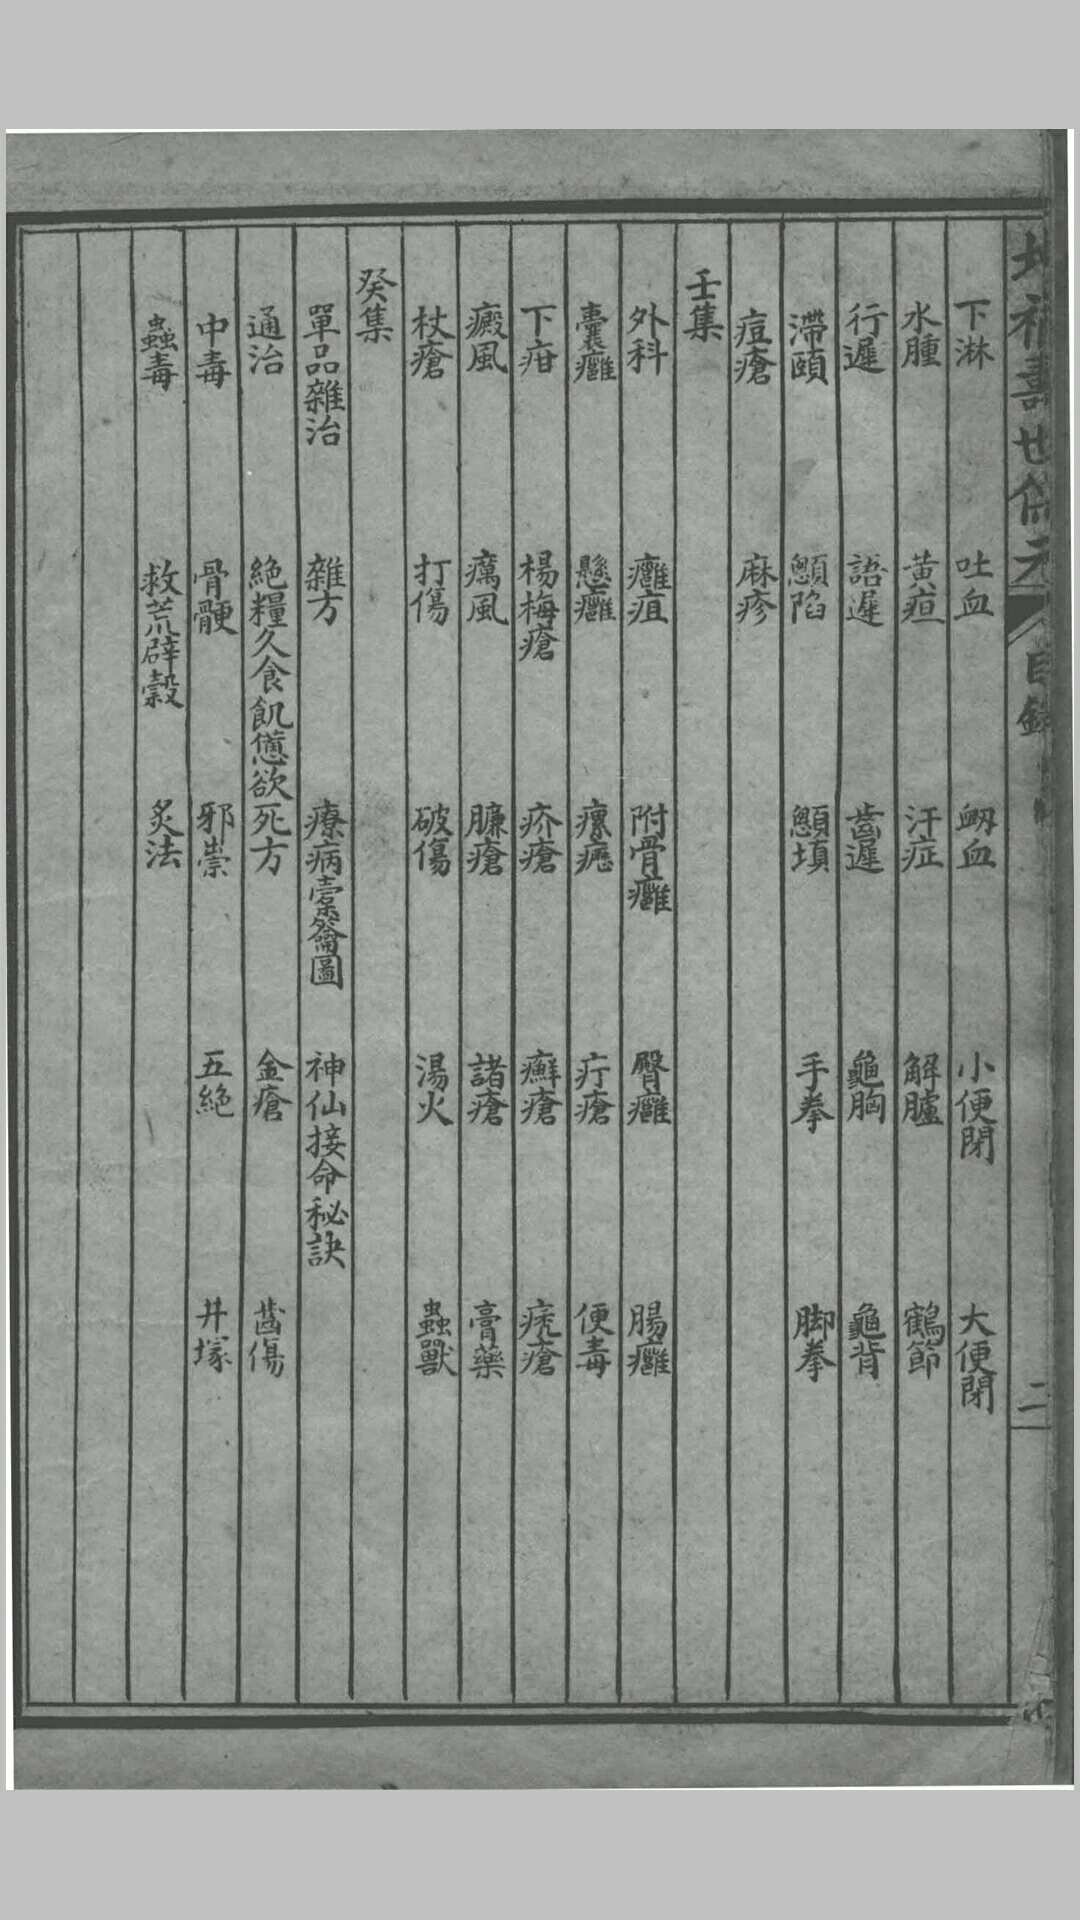 增補壽世保元 目錄 二
下淋 吐血 衂血 小便閉 大便閉
水腫 黄疸 汗症 解臚 鶴節
行遲 語遲 齒遲 龜胸 龜背
滯頤 顖陷 顖塡 手拳 脚拳
痘瘡 麻疹
壬集
外科 癰疽 附骨癰 臀癰 腸癰
囊癰 懸癰 瘰癧 疔瘡 便毒
下疳 楊梅瘡 疥瘡 癬瘡 禿瘡
癜風 癘風 臁瘡 諸瘡 膏藥
杖瘡 打傷 破傷 湯火 蟲獸
癸集
單品雜治 雜方 療病橐籥圖 神仙接命秘訣
通治 絕糧久食飢憊欲死方 金瘡 齒傷
中毒 骨骾 邪祟 五絕 井塚
蟲毒 救荒辟穀 炙法